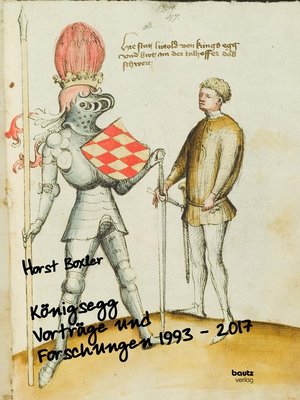 47.
hie stat luttold von kungs egg
und butt im der tallhoffer das
schwert
Horst Boxler
Königsegg
Vorträge und
Forschungen 1993 – 2017
bautz
verlag